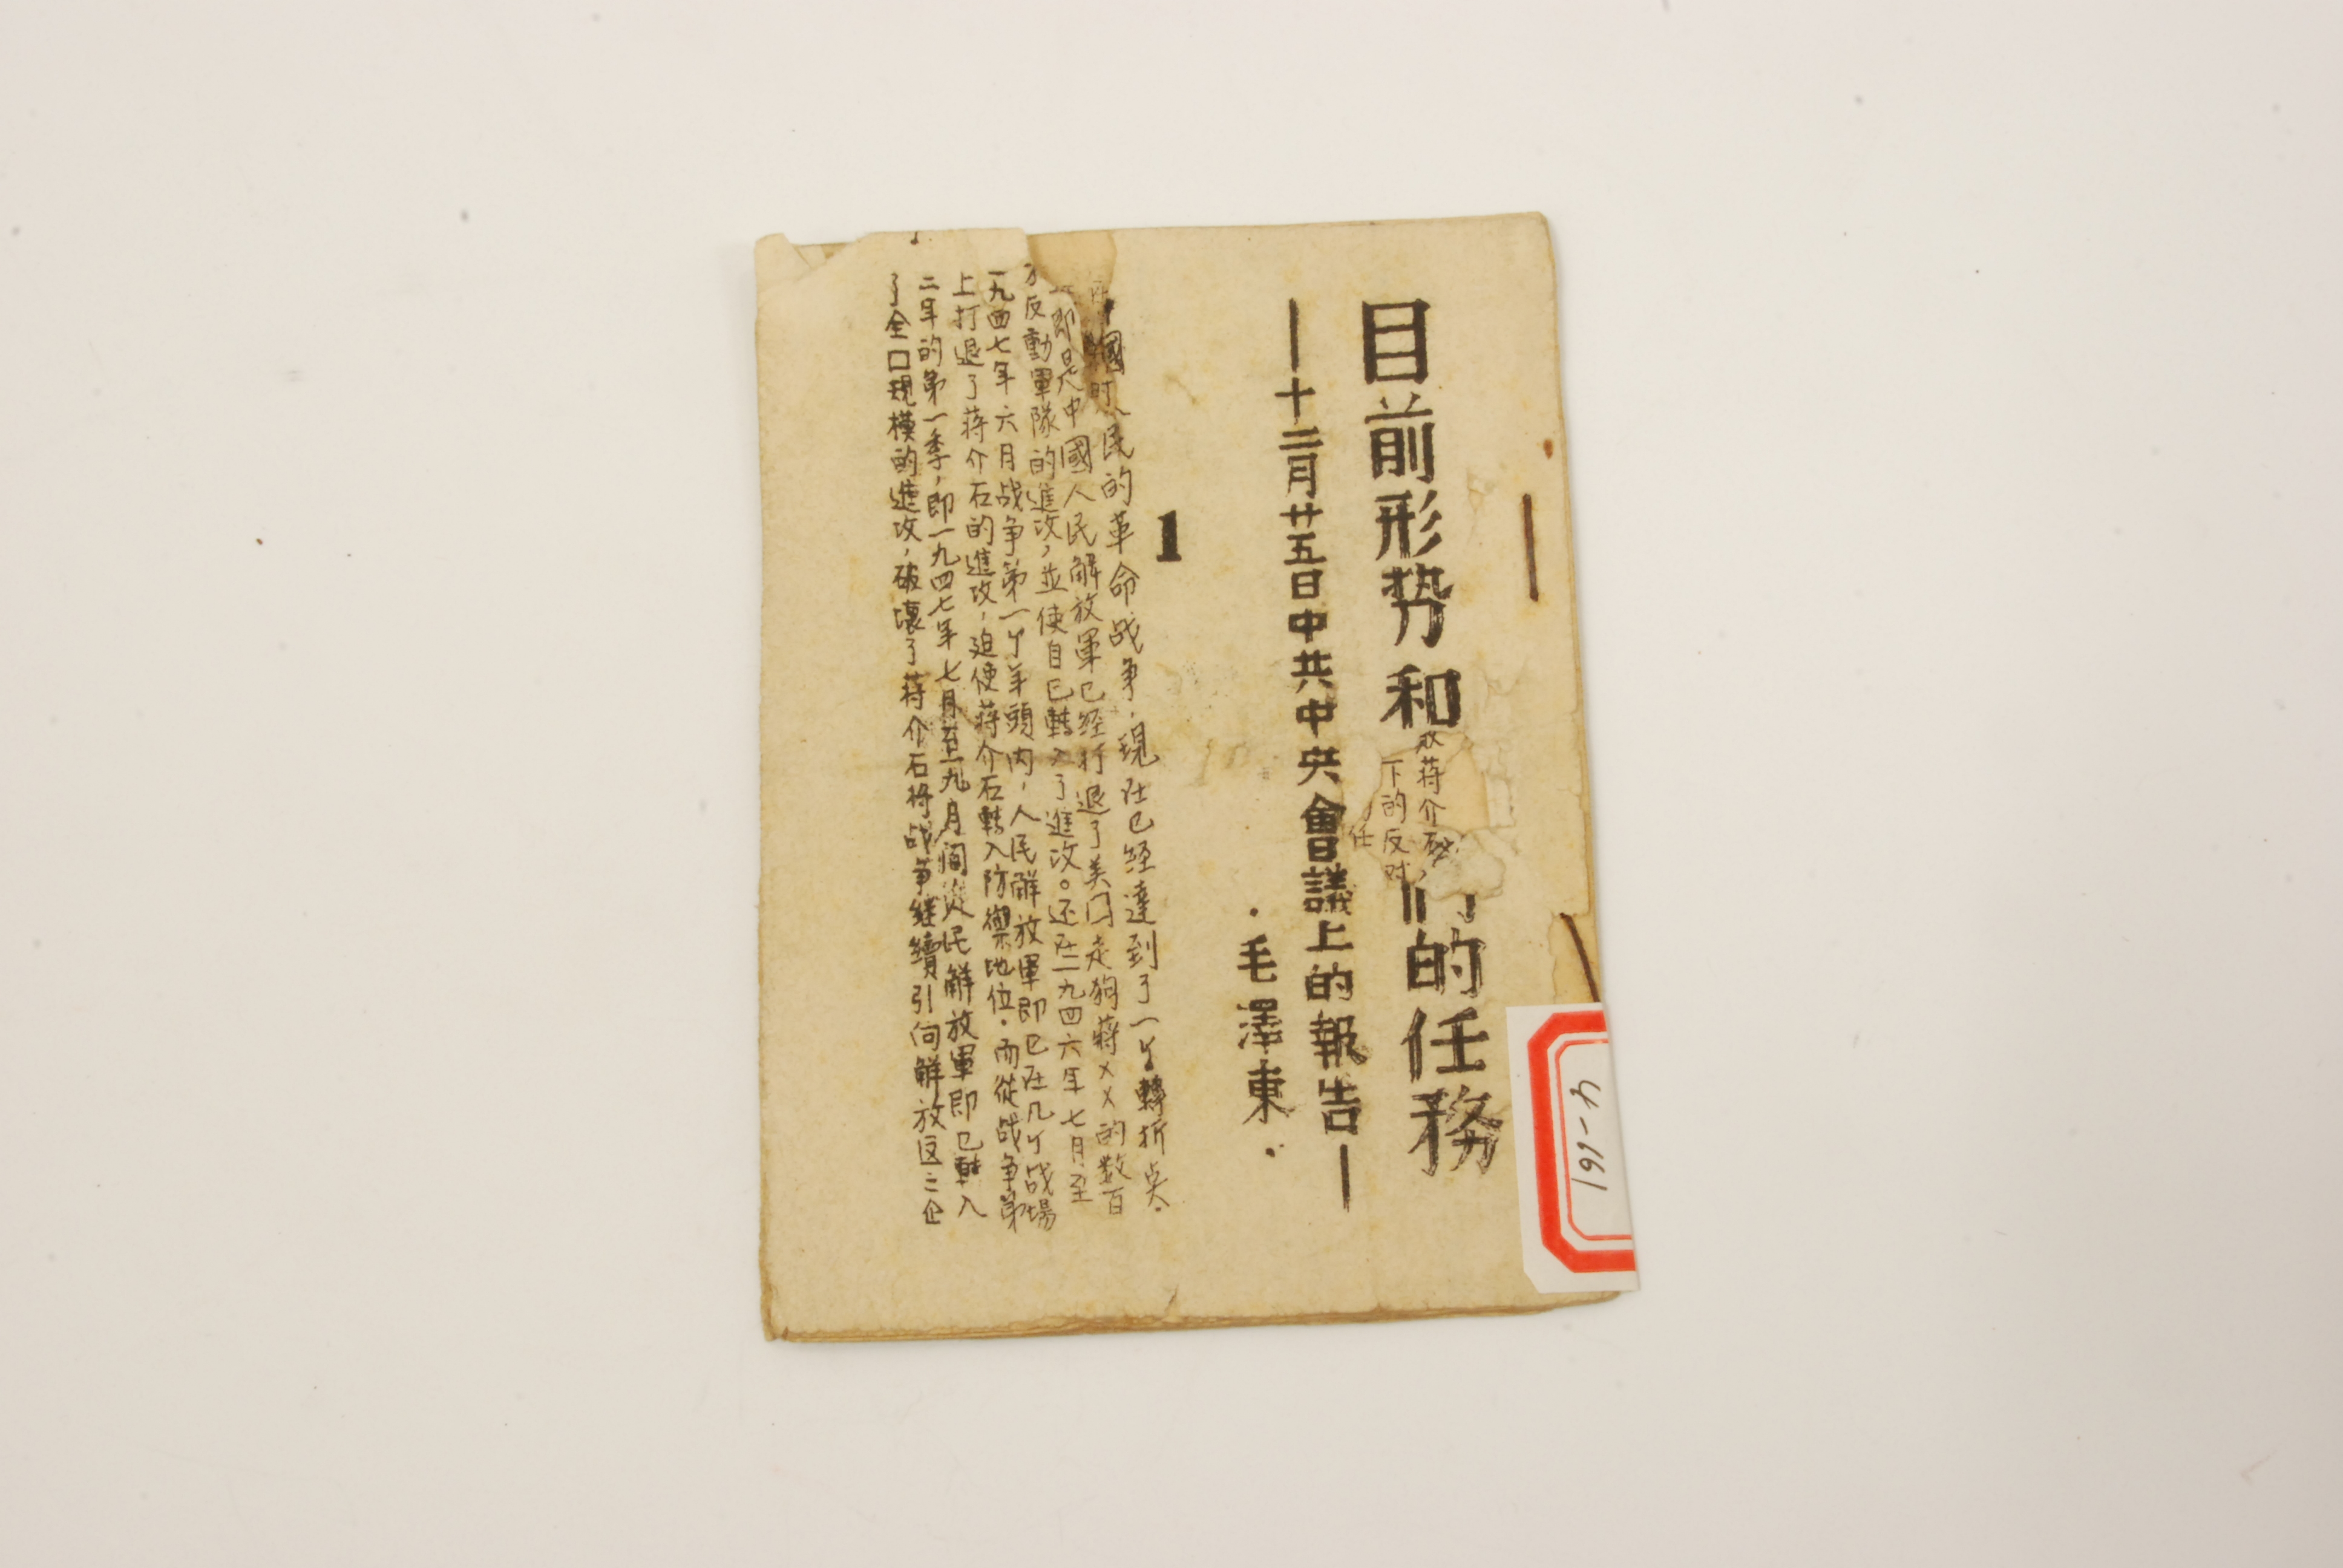 目前形势和们的任務
—十二月廿五日中共中央會議上的報告—
·毛澤東·
1
國人民的革命战争，現在已经達到了一丫轉折点。
即是中國人民解放軍已经打退了美囗走狗蒋××的数百
万反動軍隊的進攻，並使自己轉入了進攻。还在一九四六年七月至
一九四七年六月战争第一丫羊頭内，人民解放軍即已在几丫战場
上打退了蒋介石的進攻，迫使蒋介石轉入防禦地位。而從战争第
二年的第一季，即一九四七年七月至九月間人民解放軍即已轉入
了全囗規模的進攻，破壞了蒋介石將战争継續引向解放区之企
蒋介石
下的反对
任
时
4-161